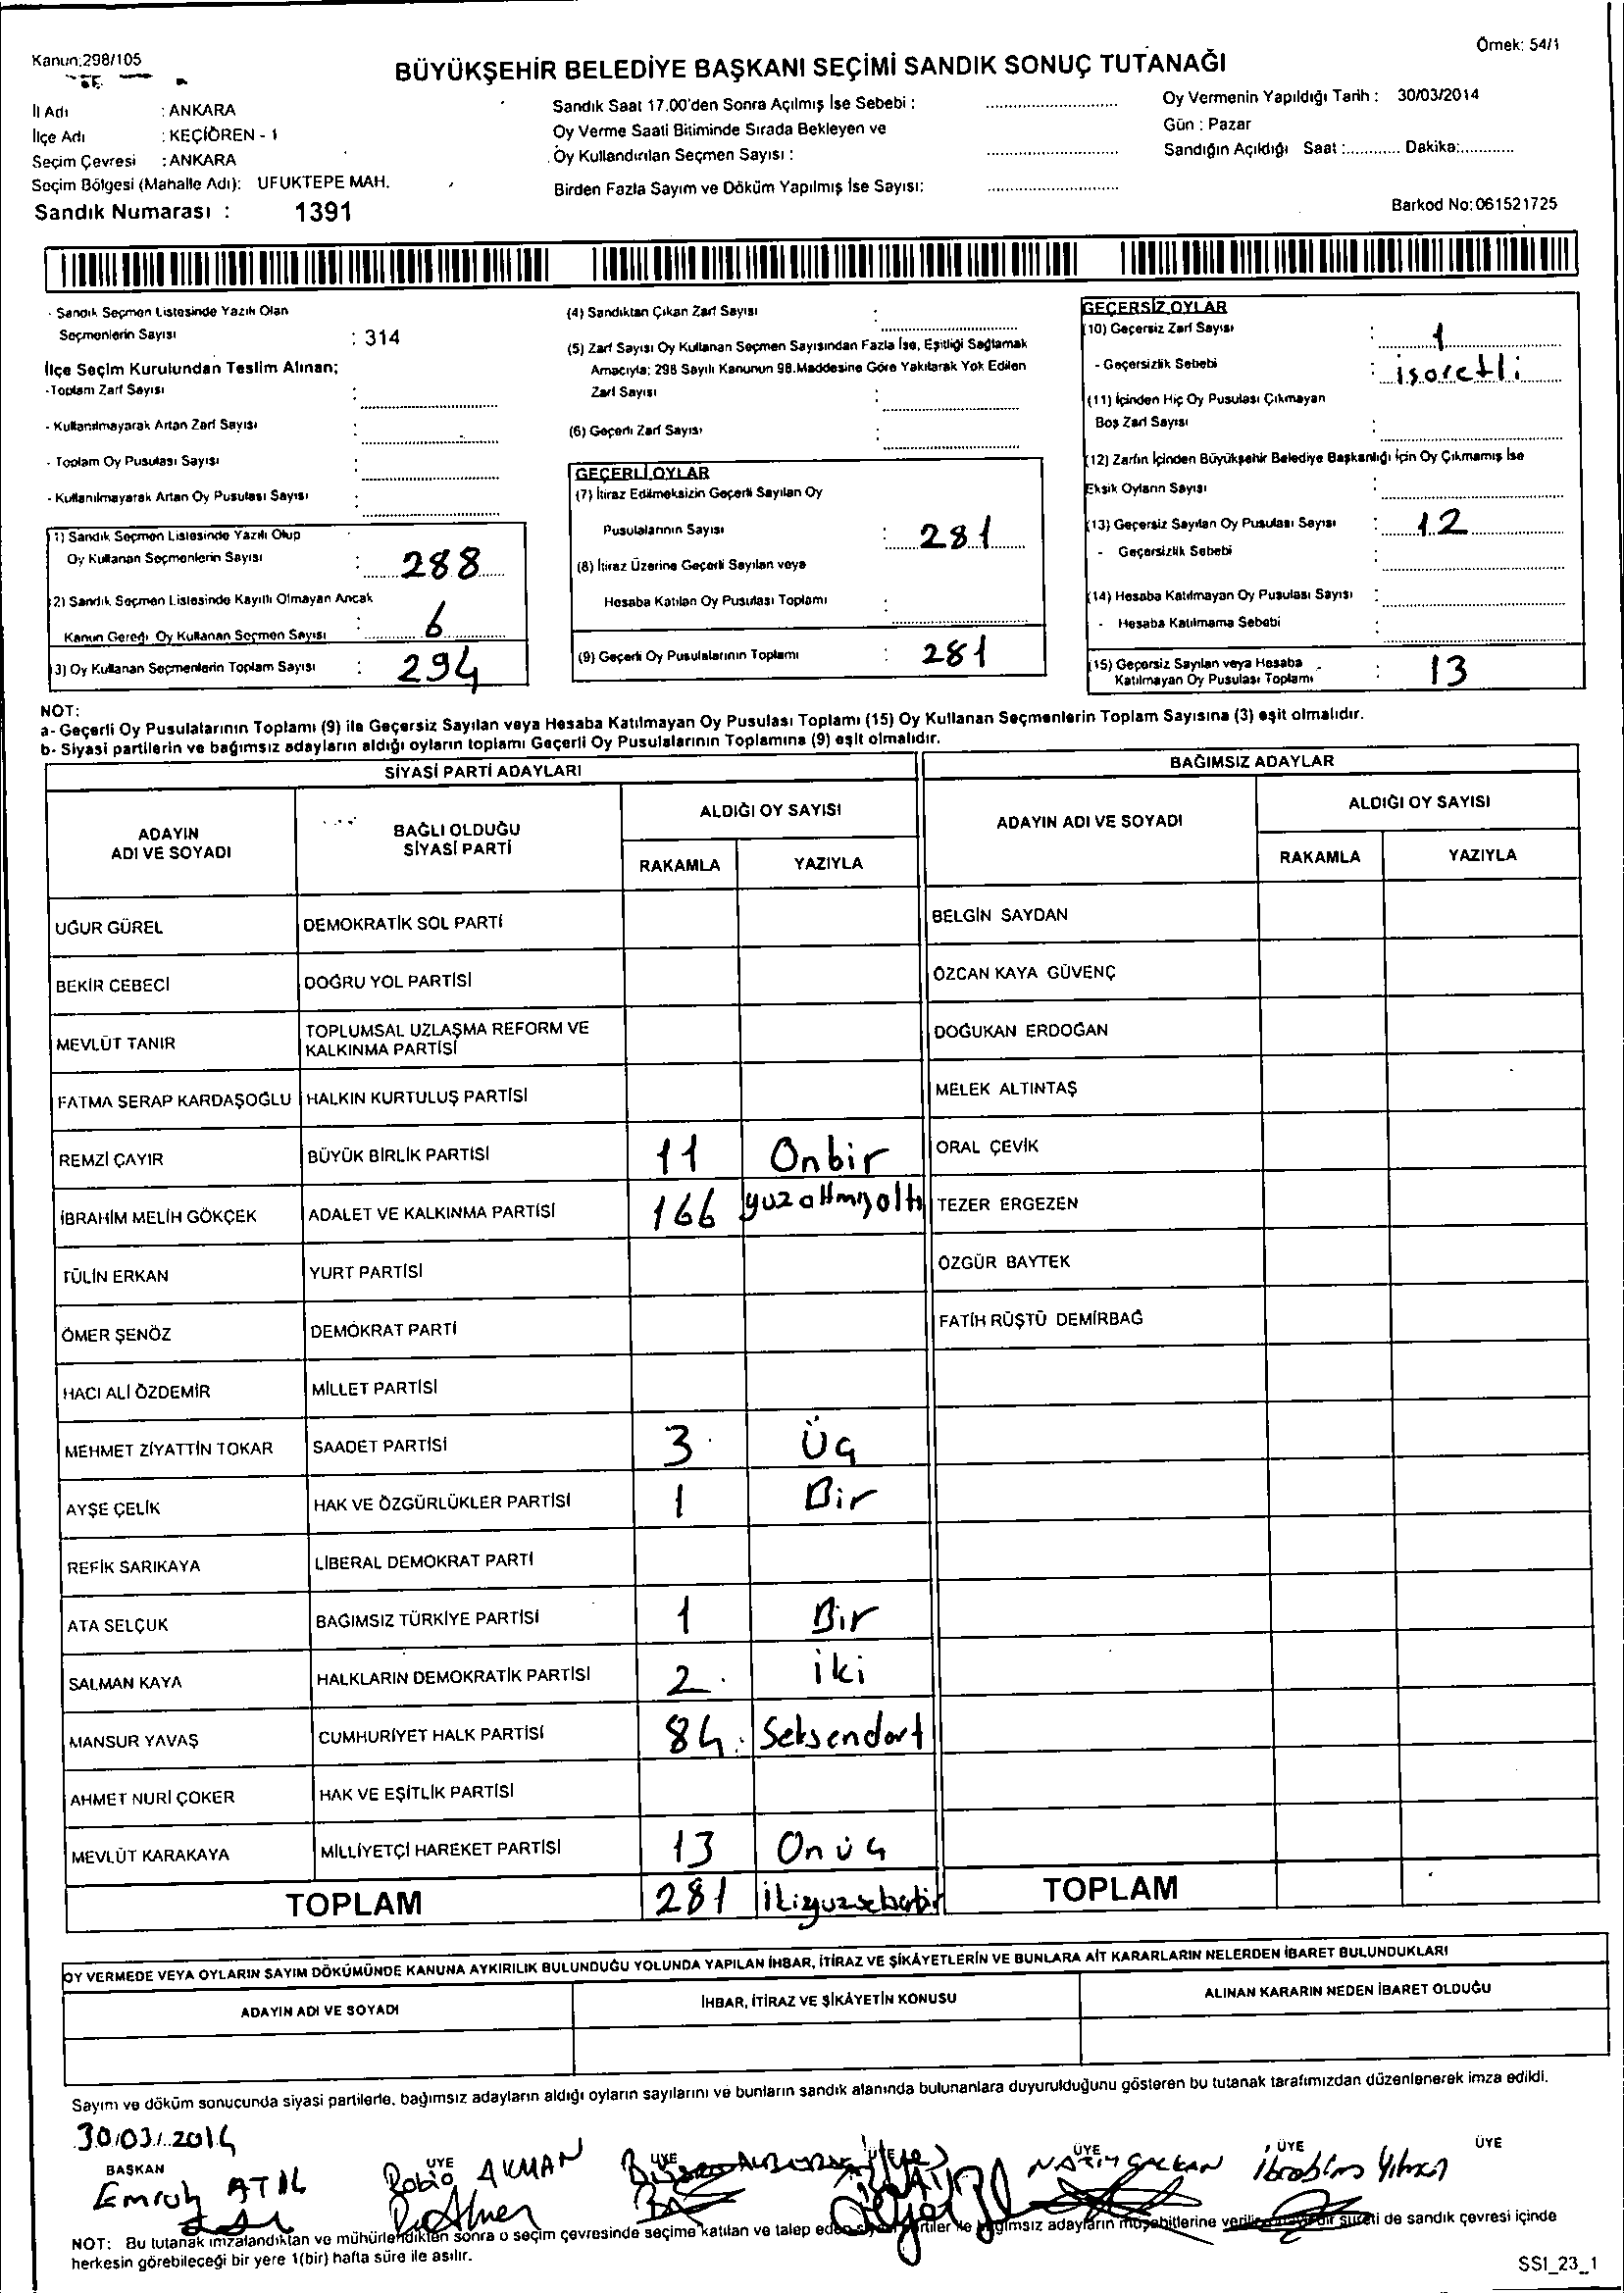 Kanun:298/105
Örnek: 54/1
BÜYÜKŞEHİR BELEDİYE BAŞKANI SEÇİMİ SANDIK SONUÇ TUTANAĞI
İl Adı : ANKARA
İlçe Adı : KEÇİÖREN - 1
Seçim Çevresi : ANKARA
Seçim Bölgesi (Mahalle Adı): UFUKTEPE MAH.
Sandık Numarası : 1391
Sandık Saat 17.00'den Sonra Açılmış İse Sebebi :
Oy Verme Saati Bitiminde Sırada Bekleyen ve
Oy Kullandırılan Seçmen Sayısı :
Birden Fazla Sayım ve Döküm Yapılmış İse Sayısı:
Oy Vermenin Yapıldığı Tarih : 30/03/2014
Gün : Pazar
Sandığın Açıldığı Saat :............ Dakika:............
Barkod No:061521725
- Sandık Seçmen Listesinde Yazılı Olan
Seçmenlerin Sayısı : 314
İlçe Seçim Kurulundan Teslim Alınan;
-Toplam Zarf Sayısı :
- Kullanılmayarak Artan Zarf Sayısı :
- Toplam Oy Pusulası Sayısı :
- Kullanılmayarak Artan Oy Pusulası Sayısı :
(1) Sandık Seçmen Listesinde Yazılı Olup
Oy Kullanan Seçmenlerin Sayısı : 288
(2) Sandık Seçmen Listesinde Kayıtlı Olmayan Ancak
Kanun Gereği Oy Kullanan Seçmen Sayısı : 6
(3) Oy Kullanan Seçmenlerin Toplam Sayısı : 294
(4) Sandıktan Çıkan Zarf Sayısı :
(5) Zarf Sayısı Oy Kullanan Seçmen Sayısından Fazla İse, Eşitliği Sağlamak
Amacıyla; 298 Sayılı Kanunun 98.Maddesine Göre Yakılarak Yok Edilen
Zarf Sayısı :
(6) Geçerli Zarf Sayısı :
GEÇERLİ OYLAR
(7) İtiraz Edilmeksizin Geçerli Sayılan Oy
Pusulalarının Sayısı : 281
(8) İtiraz Üzerine Geçerli Sayılan veya
Hesaba Katılan Oy Pusulası Toplamı :
(9) Geçerli Oy Pusulalarının Toplamı : 281
GEÇERSİZ OYLAR
(10) Geçersiz Zarf Sayısı : 1
- Geçersizlik Sebebi : işaretli
(11) İçinden Hiç Oy Pusulası Çıkmayan
Boş Zarf Sayısı :
(12) Zarfın İçinden Büyükşehir Belediye Başkanlığı İçin Oy Çıkmamış İse
Eksik Oyların Sayısı :
(13) Geçersiz Sayılan Oy Pusulası Sayısı : 12
- Geçersizlik Sebebi :
(14) Hesaba Katılmayan Oy Pusulası Sayısı :
- Hesaba Katılmama Sebebi :
(15) Geçersiz Sayılan veya Hesaba
Katılmayan Oy Pusulası Toplamı : 13
NOT:
a- Geçerli Oy Pusulalarının Toplamı (9) ile Geçersiz Sayılan veya Hesaba Katılmayan Oy Pusulası Toplamı (15) Oy Kullanan Seçmenlerin Toplam Sayısına (3) eşit olmalıdır.
b- Siyasi partilerin ve bağımsız adayların aldığı oyların toplamı Geçerli Oy Pusulalarının Toplamına (9) eşit olmalıdır.
SİYASİ PARTİ ADAYLARI BAĞIMSIZ ADAYLAR
ADAYIN ADI VE SOYADI BAĞLI OLDUĞU SİYASİ PARTİ ALDIĞI OY SAYISI ADAYIN ADI VE SOYADI ALDIĞI OY SAYISI
RAKAMLA YAZIYLA RAKAMLA YAZIYLA
UĞUR GÜREL DEMOKRATİK SOL PARTİ BELGİN SAYDAN
BEKİR CEBECİ DOĞRU YOL PARTİSİ ÖZCAN KAYA GÜVENÇ
MEVLÜT TANIR TOPLUMSAL UZLAŞMA REFORM VE KALKINMA PARTİSİ DOĞUKAN ERDOĞAN
FATMA SERAP KARDAŞOĞLU HALKIN KURTULUŞ PARTİSİ MELEK ALTINTAŞ
REMZİ ÇAYIR BÜYÜK BİRLİK PARTİSİ 11 Onbir ORAL ÇEVİK
İBRAHİM MELİH GÖKÇEK ADALET VE KALKINMA PARTİSİ 166 yuzaltmışaltı TEZER ERGEZEN
TÜLİN ERKAN YURT PARTİSİ ÖZGÜR BAYTEK
ÖMER ŞENÖZ DEMOKRAT PARTİ FATİH RÜŞTÜ DEMİRBAĞ
HACI ALİ ÖZDEMİR MİLLET PARTİSİ
MEHMET ZİYATTİN TOKAR SAADET PARTİSİ 3 Üç
AYŞE ÇELİK HAK VE ÖZGÜRLÜKLER PARTİSİ 1 Bir
REFİK SARIKAYA LİBERAL DEMOKRAT PARTİ
ATA SELÇUK BAĞIMSIZ TÜRKİYE PARTİSİ 1 Bir
SALMAN KAYA HALKLARIN DEMOKRATİK PARTİSİ 2 iki
MANSUR YAVAŞ CUMHURİYET HALK PARTİSİ 84 Seksendort
AHMET NURİ ÇOKER HAK VE EŞİTLİK PARTİSİ
MEVLÜT KARAKAYA MİLLİYETÇİ HAREKET PARTİSİ 13 Onüç
TOPLAM 281 TOPLAM
OY VERMEDE VEYA OYLARIN SAYIM DÖKÜMÜNDE KANUNA AYKIRILIK BULUNDUĞU YOLUNDA YAPILAN İHBAR, İTİRAZ VE ŞİKÂYETLERİN VE BUNLARA AİT KARARLARIN NELERDEN İBARET BULUNDUKLARI
ADAYIN ADI VE SOYADI İHBAR, İTİRAZ VE ŞİKÂYETİN KONUSU ALINAN KARARIN NEDEN İBARET OLDUĞU
Sayım ve döküm sonucunda siyasi partilerle, bağımsız adayların aldığı oyların sayılarını ve bunların sandık alanında bulunanlara duyurulduğunu gösteren bu tutanak tarafımızdan düzenlenerek imza edildi.
30/03/2014
BAŞKAN ÜYE ÜYE ÜYE ÜYE ÜYE ÜYE
Emrah ATIL Rabia AKMAN İbrahim Yılmaz
NOT: Bu tutanak imzalandıktan ve mühürlendikten sonra o seçim çevresinde seçime katılan ve talep eden siyasi partiler ile bağımsız adayların müşahitlerine sureti de sandık çevresi içinde
herkesin görebileceği bir yere 1(bir) hafta süre ile asılır.
SSI_23_1